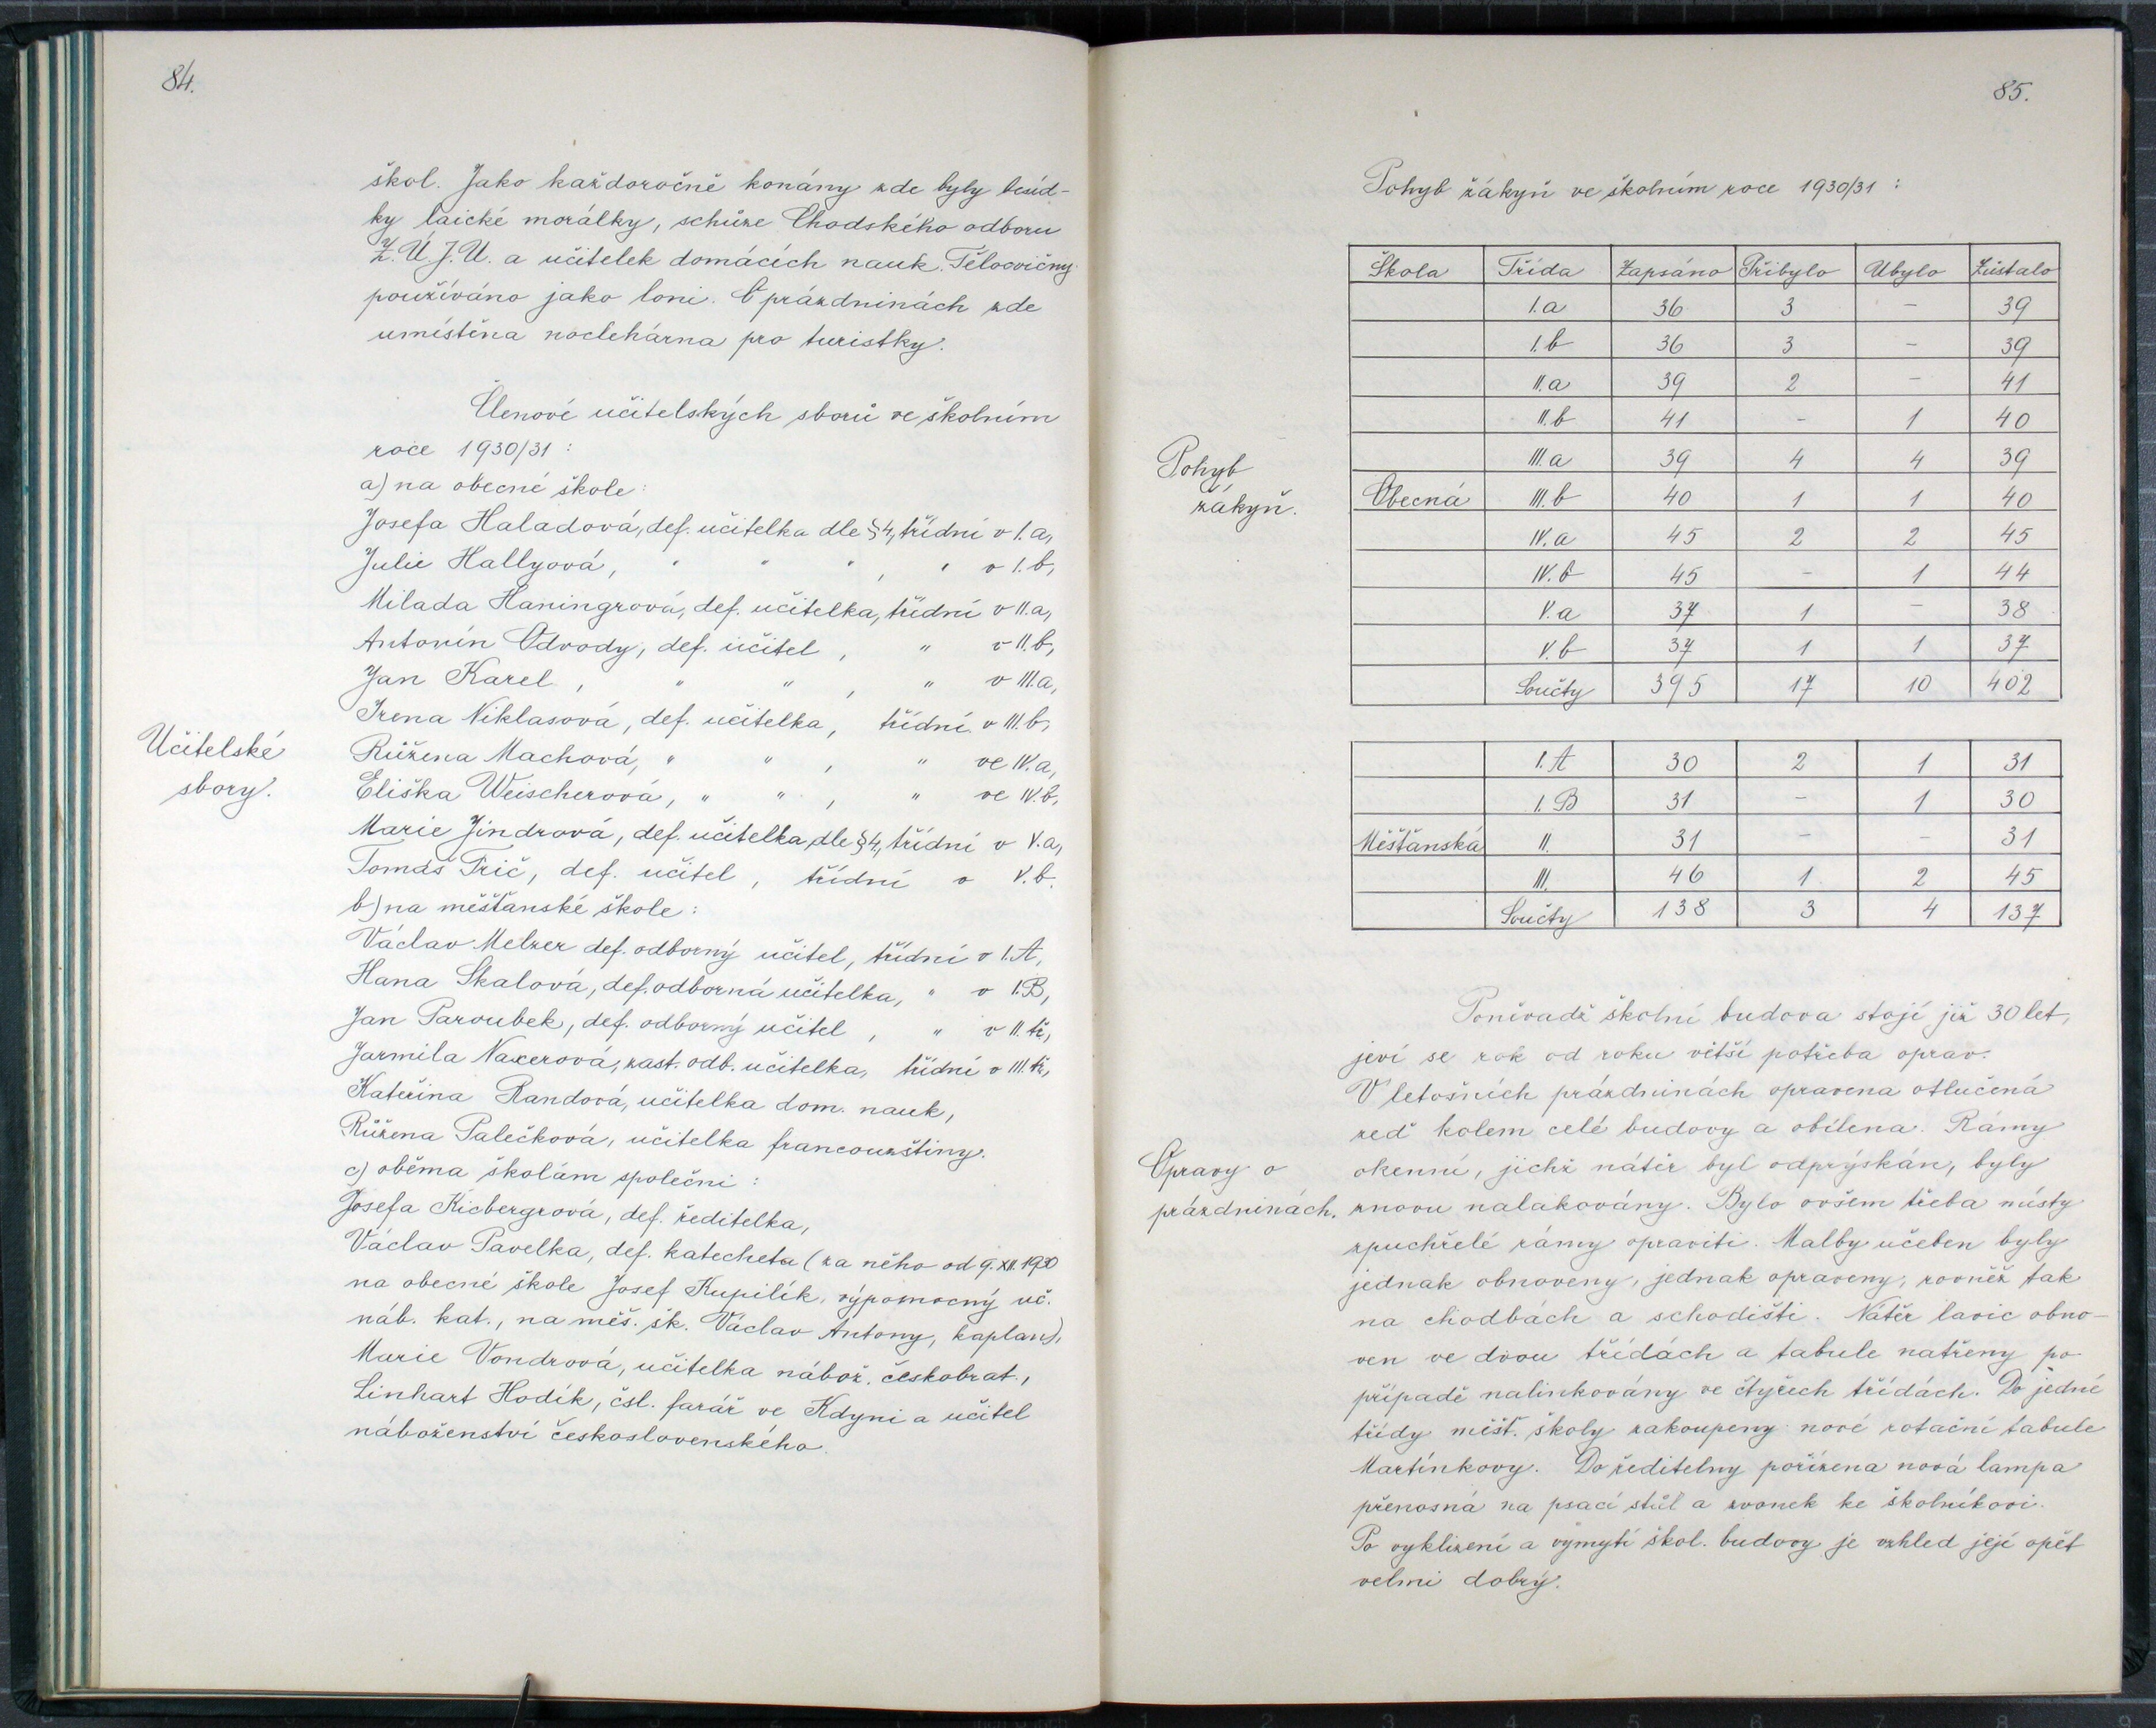 84.
škol. Jako každoročně konány zde byly besíd-
ky laické morálky, schůze Chodského odboru
Z.Ú.J.U. a učitelek domácích nauk. Tělocvičny
používáno jako loni. O prázdninách zde
umístěna noclehárna pro turistky.
Členové učitelských sborů ve školním
roce 1930/31 :
a) na obecné škole:
Josefa Haladová, def. učitelka dle §4, třídní v I.a,
Julie Hallyová, " " " , " v I.b,
Milada Haningrová, def. učitelka, třídní v II.a,
Antonín Odvody, def. učitel , " v II.b,
Jan Karel , " " , " v III.a,
Irena Niklasová, def. učitelka, třídní v III.b,
Učitelské
sbory.
Růžena Machová, " " , " ve IV.a,
Eliška Weischerová, " " , " ve IV.b,
Marie Jindrová, def. učitelka dle §4., třídní v V.a,
Tomáš Trič, def. učitel , třídní v V.b.
b) na měšťanské škole :
Václav Melzer def. odborný učitel, třídní v I.A,
Hana Skalová, def. odborná učitelka, " v I.B,
Jan Paroubek, def. odborný učitel , " v II.tř,
Jarmila Naxerová, zast. odb. učitelka, třídní v III.tř,
Kateřina Randová, učitelka dom. nauk,
Růžena Palečková, učitelka francouzštiny.
c) oběma školám společni :
Josefa Kicbergrová, def. ředitelka,
Václav Pavelka, def. katecheta (za něho od 9.XII.1930
na obecné škole Josef Kupilík, výpomocný uč.
náb. kat., na měš. šk. Václav Antony, kaplan),
Marie Vondrová, učitelka nábož. českobrat.,
Linhart Hodík, čsl. farář ve Kdyni a učitel
náboženství československého.
85.
Pohyb žákyň ve školním roce 1930/31 :
Pohyb
žákyň.
Škola Třída Zapsáno Přibylo Ubylo Zůstalo
I.a 36 3 – 39
I.b 36 3 – 39
II.a 39 2 – 41
II.b 41 – 1 40
III.a 39 4 4 39
Obecná III.b 40 1 1 40
IV.a 45 2 2 45
IV.b 45 – 1 44
V.a 37 1 – 38
V.b 37 1 1 37
Součty 395 17 10 402
I.A 30 2 1 31
I.B 31 – 1 30
Měšťanská II. 31 – – 31
III. 46 1 2 45
Součty 138 3 4 137
Poněvadž školní budova stojí již 30 let,
jeví se rok od roku větší potřeba oprav.
V letošních prázdninách opravena otlučená
zeď kolem celé budovy a obílena. Rámy
Opravy o
prázdninách.
okenní, jichž nátěr byl odprýskán, byly
znovu nalakovány. Bylo ovšem třeba místy
zpuchřelé rámy opraviti. Malby učeben byly
jednak obnoveny, jednak opraveny, rovněž tak
na chodbách a schodišti. Nátěr lavic obno-
ven ve dvou třídách a tabule natřeny po
případě nalinkovány ve čtyřech třídách. Do jedné
třídy měšť. školy zakoupeny nové rotační tabule
Martínkovy. Do ředitelny pořízena nová lampa
přenosná na psací stůl a zvonek ke školníkovi.
Po vyklizení a vymytí škol. budovy je vzhled její opět
velmi dobrý.